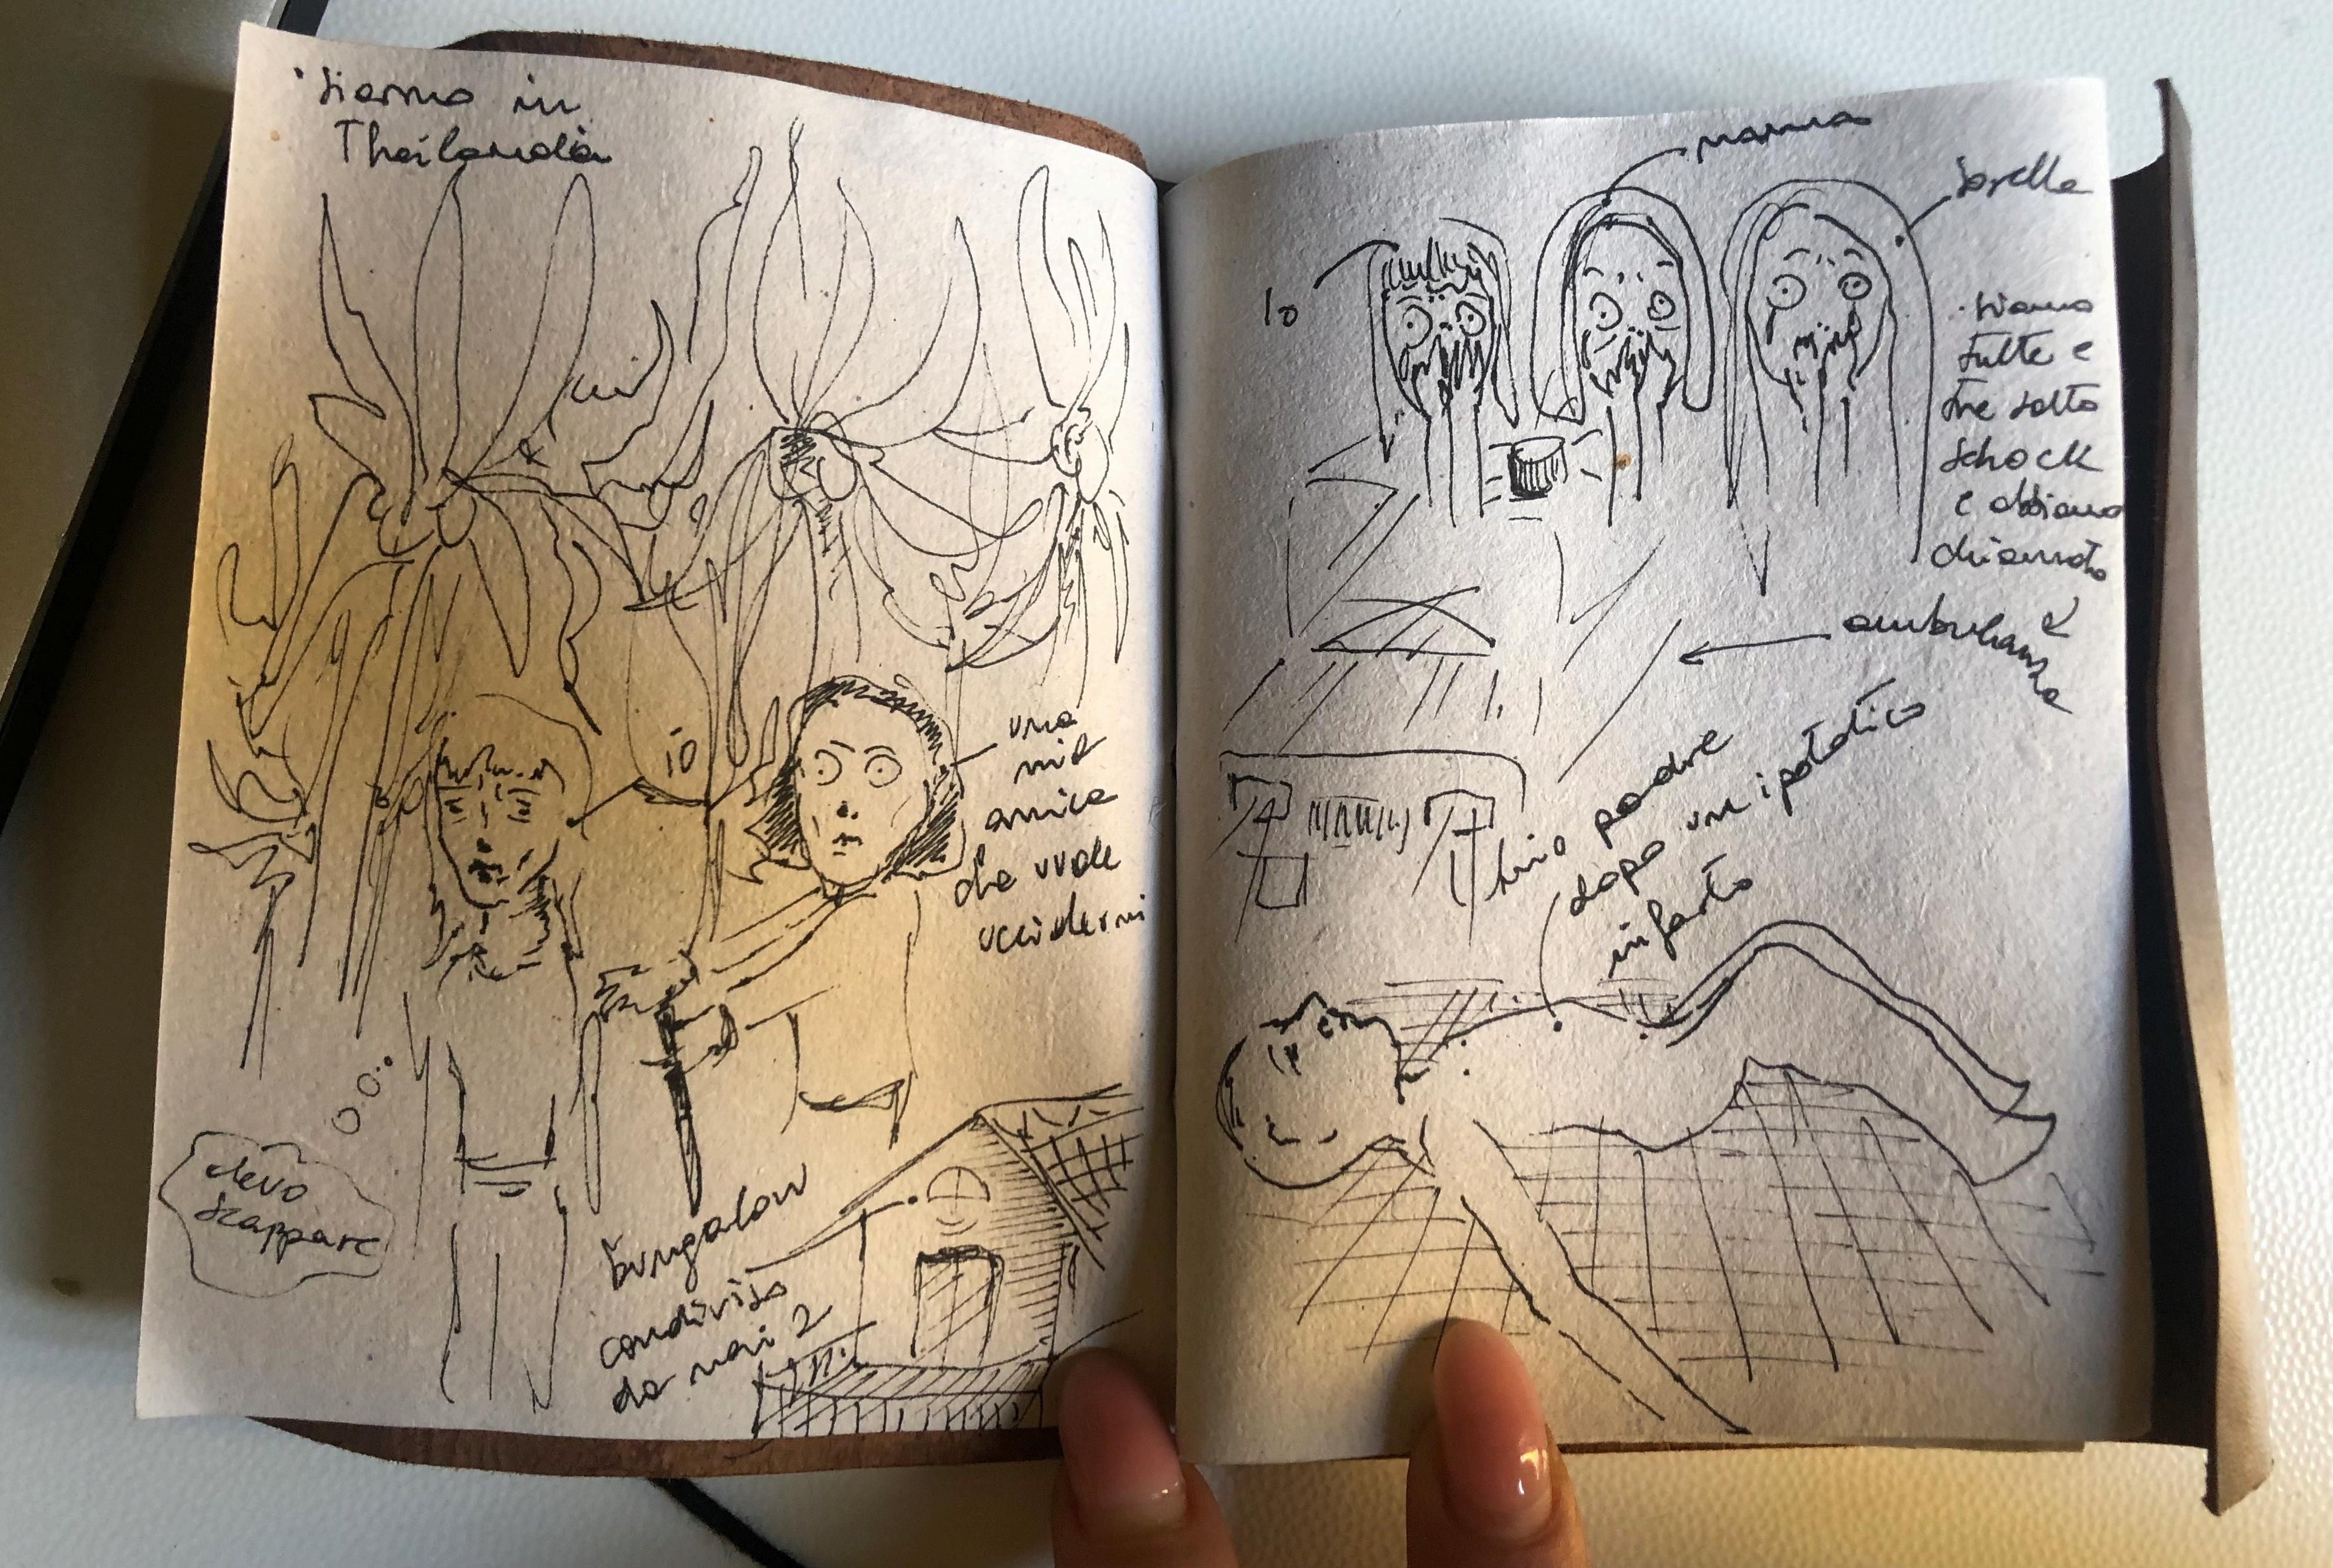 · siamo in
Thailandia
io
una
mia
amica
che vuole
uccidermi
devo
scappare
bungalow
condiviso
da noi 2
mamma
sorella
Io
· siamo
tutte e
tre sotto
schock
e abbiamo
chiamato
ambulanza
mio padre
dopo un ipotetico
infarto